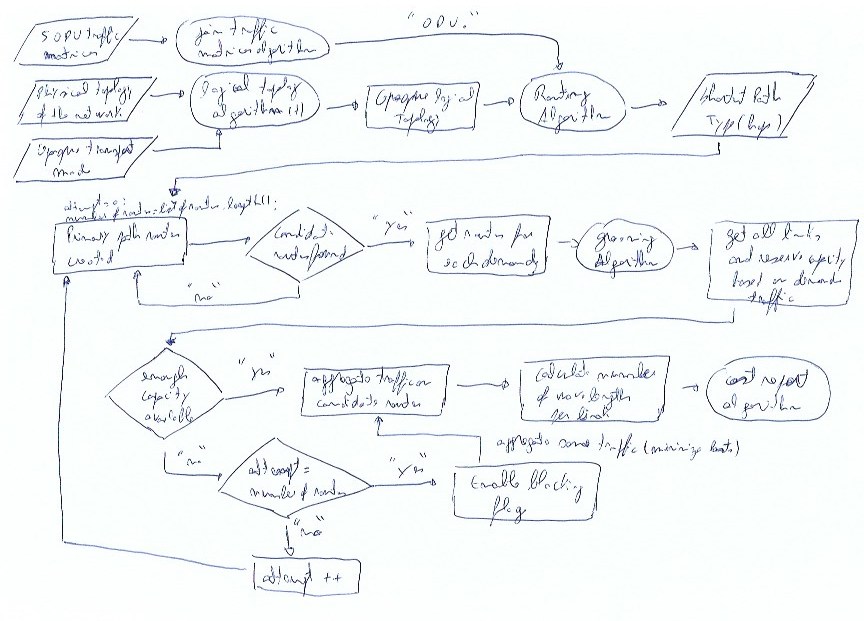 "ODU."
5 ODU traffic
matrices
join traffic
matrices algorithm
Physical topology
of the network
logical topology
algorithm (1)
Opaque logical
Topology
Routing
Algorithm
Shortest Path
Type (hops)
Opaque transport
mode
attempt=0;
number of routes = list of routes.length();
Primary path routes
created
candidate
routes found
"yes"
"no"
get routes for
each demand
grooming
Algorithm
get all links
and reserve capacity
based on demands
traffic
enough
capacity
available
"yes"
aggregate traffic on
candidate routes
calculate number
of wavelengths
per link
cost report
algorithm
"no"
attempt =
number of routes
"yes"
aggregate some traffic (minimize)
Enable blocking
flag
"no"
attempt ++